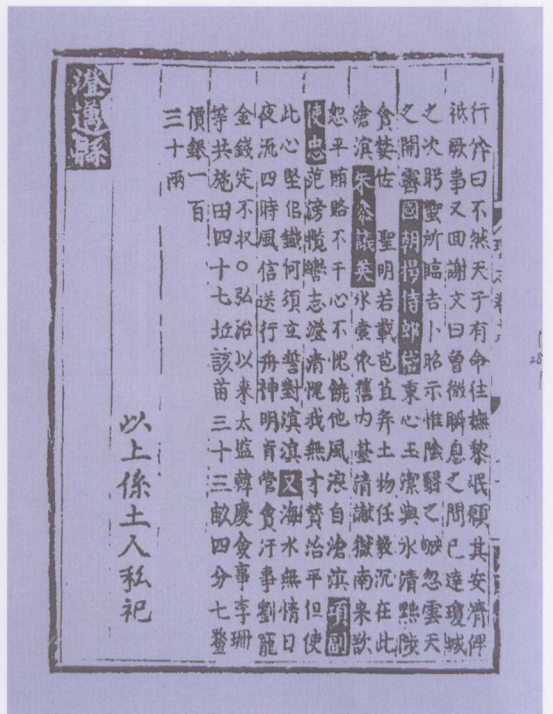 行作曰不然天子有命往撫黎氓願其安濟俾
祇厥事又回謝文曰曾微瞬息之間已達瓊城
之次躬所臨吉卜昭示惟陰騭之忽雲天
之開霽國朝楊侍郎岱東心玉潔與氷清黜陟
貪婪佐 聖明若載苞苴弃土物任教沉在此
滄溟朱參議英氷蘗依舊內臺清讞獄南来歎
恕平賄賂不干心不愧饒他風浪自滄溟項副
使忠范滂攬轡志澄清愧我無才贊治平但使
此心堅佀鐵何須立誓對溟溟又海水無情日
夜流四時風信送行舟神明肯管貪汙事劉寵
金錢定不収○弘治以来太監韓慶僉事李珊
等共施田四十七坵該苗三十三畝四分七釐
價銀一百
三十兩
以上係土人私祀
澄邁縣